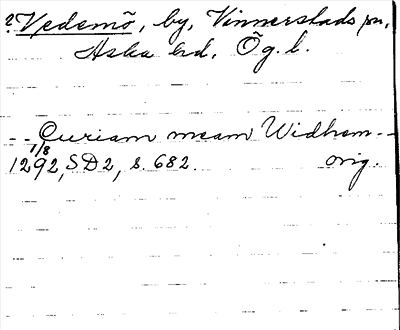 ? Vedemö, by, Vinnerstads sn,
Aska hd, Ög. l.
- - Curiam meam Widhem - -
1/8
1292, SD2, s. 682. orig.